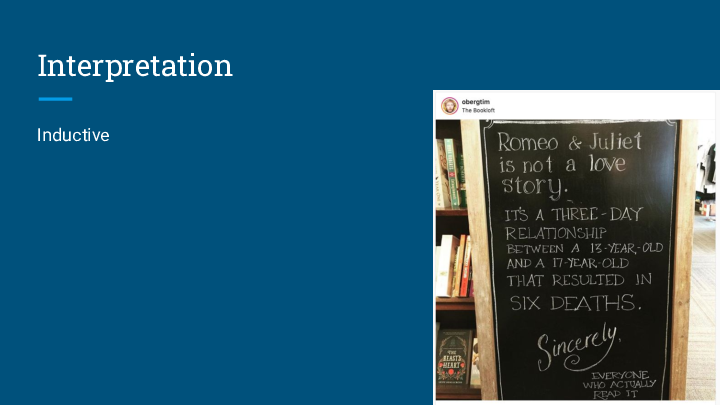 Interpretation
Inductive
obergtim
The Bookloft
Romeo & Juliet
is not a love
story.
IT'S A THREE-DAY
RELATIONSHIP
BETWEEN A 13-YEAR-OLD
AND A 17-YEAR-OLD
THAT RESULTED IN
SIX DEATHS.
Sincerely,
EVERYONE
WHO ACTUALLY
READ IT
THE
BEAST'S
HEART